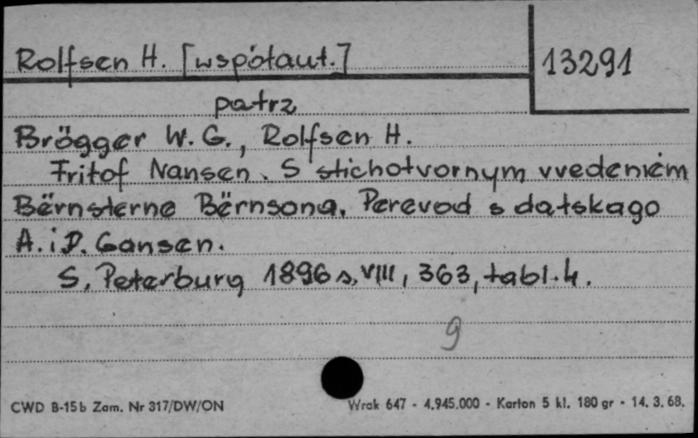 Rolfsen H. [współaut.]
13291
patrz
Brögger W. G., Rolfsen H.
Fritof Nansen. S stichotvornym vvedeniem
Bërnsterne Bërnsona. Perevod s datskago
A. i P. Gansen.
S. Peterburg 1896 s. VIII, 363, tabl. 4.
9
CWD B-15b Zam. Nr 317/DW/ON
Wrak 647 - 4.945.000 - Karton 5 kl. 180 gr - 14. 3. 68.